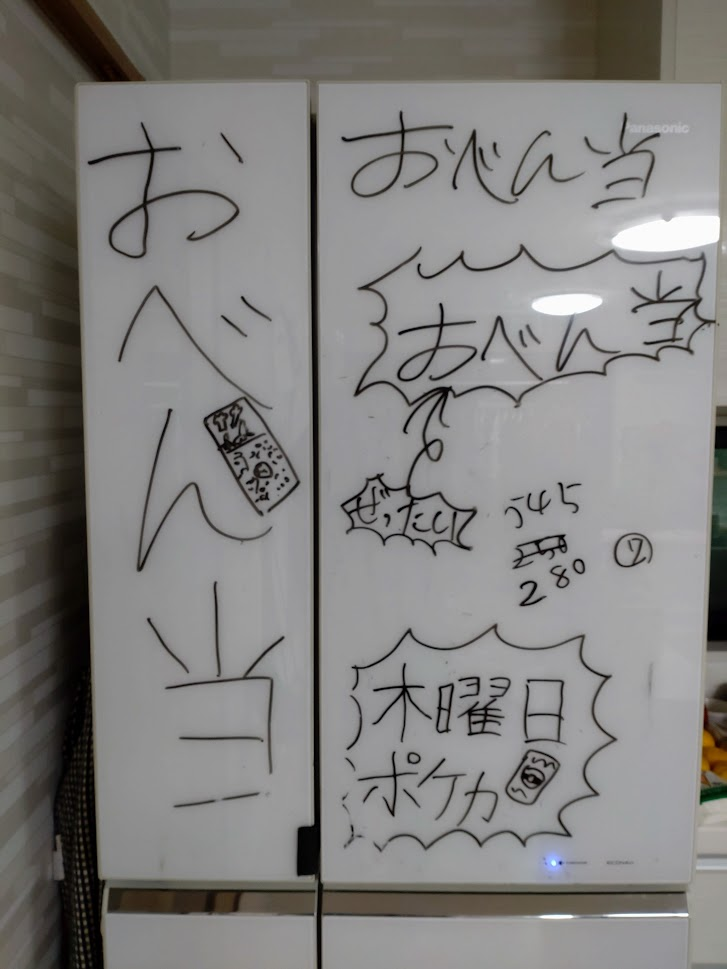 おべん当
Panasonic
おべん当
おべん当
ぜったい
545
280
⑦
木曜日
ポケカ